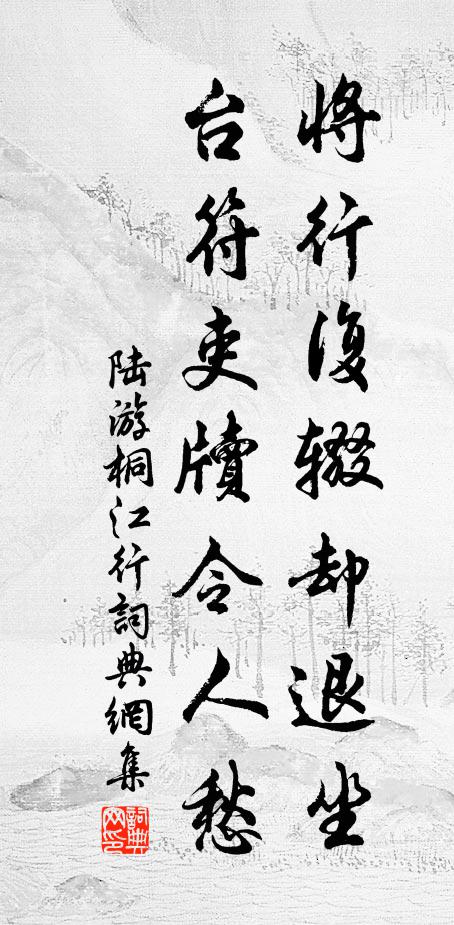 将行復辍却退坐
台符吏牘令人愁
陆游桐江行詞典網集
詞典网印